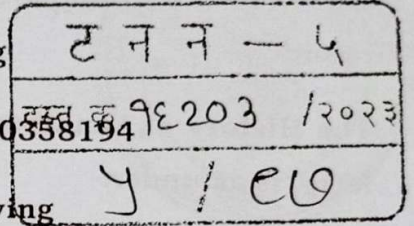 g ट न न — ५
दस्त क्र १६२०३ /२०२३
0358194
५ / ९७
ving